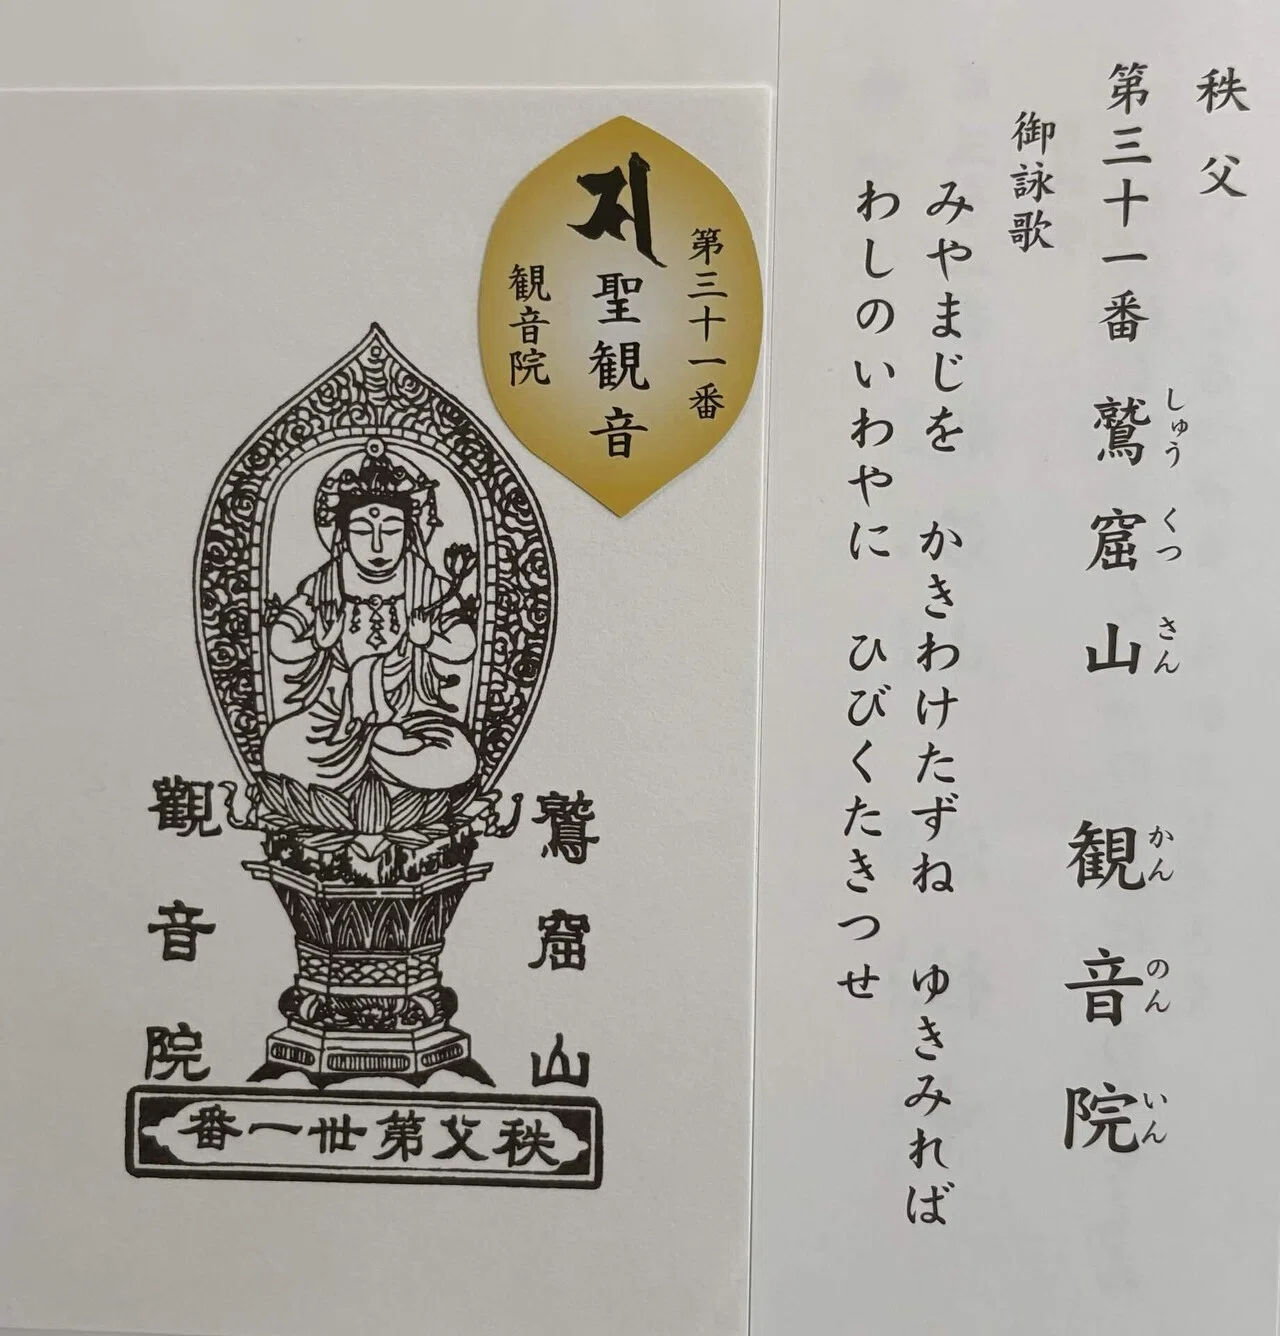 秩父
第三十一番 鷲窟山 観音院
しゅう くつ さん かん のん いん
御詠歌
みやまじを かきわけたずね ゆきみれば
わしのいわやに ひびくたきつせ
第三十一番
聖観音
観音院
鷲窟山
觀音院
秩父第卅一番